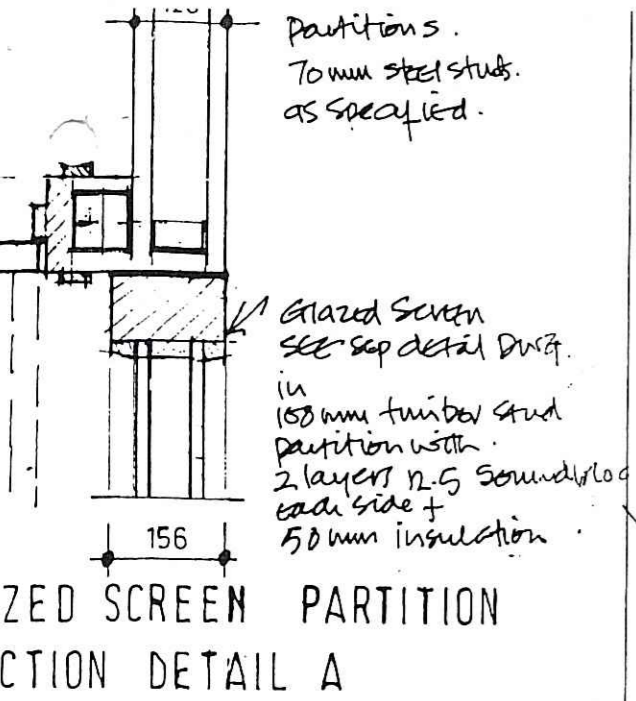 Partitions.
70mm steel studs.
as specified.
Glazed Screen
SEE sep detail Dwg.
in
100mm timber stud
partition with.
2 layers 12.5 Soundbloc
each side +
50mm insulation.
156
ZED SCREEN PARTITION
CTION DETAIL A